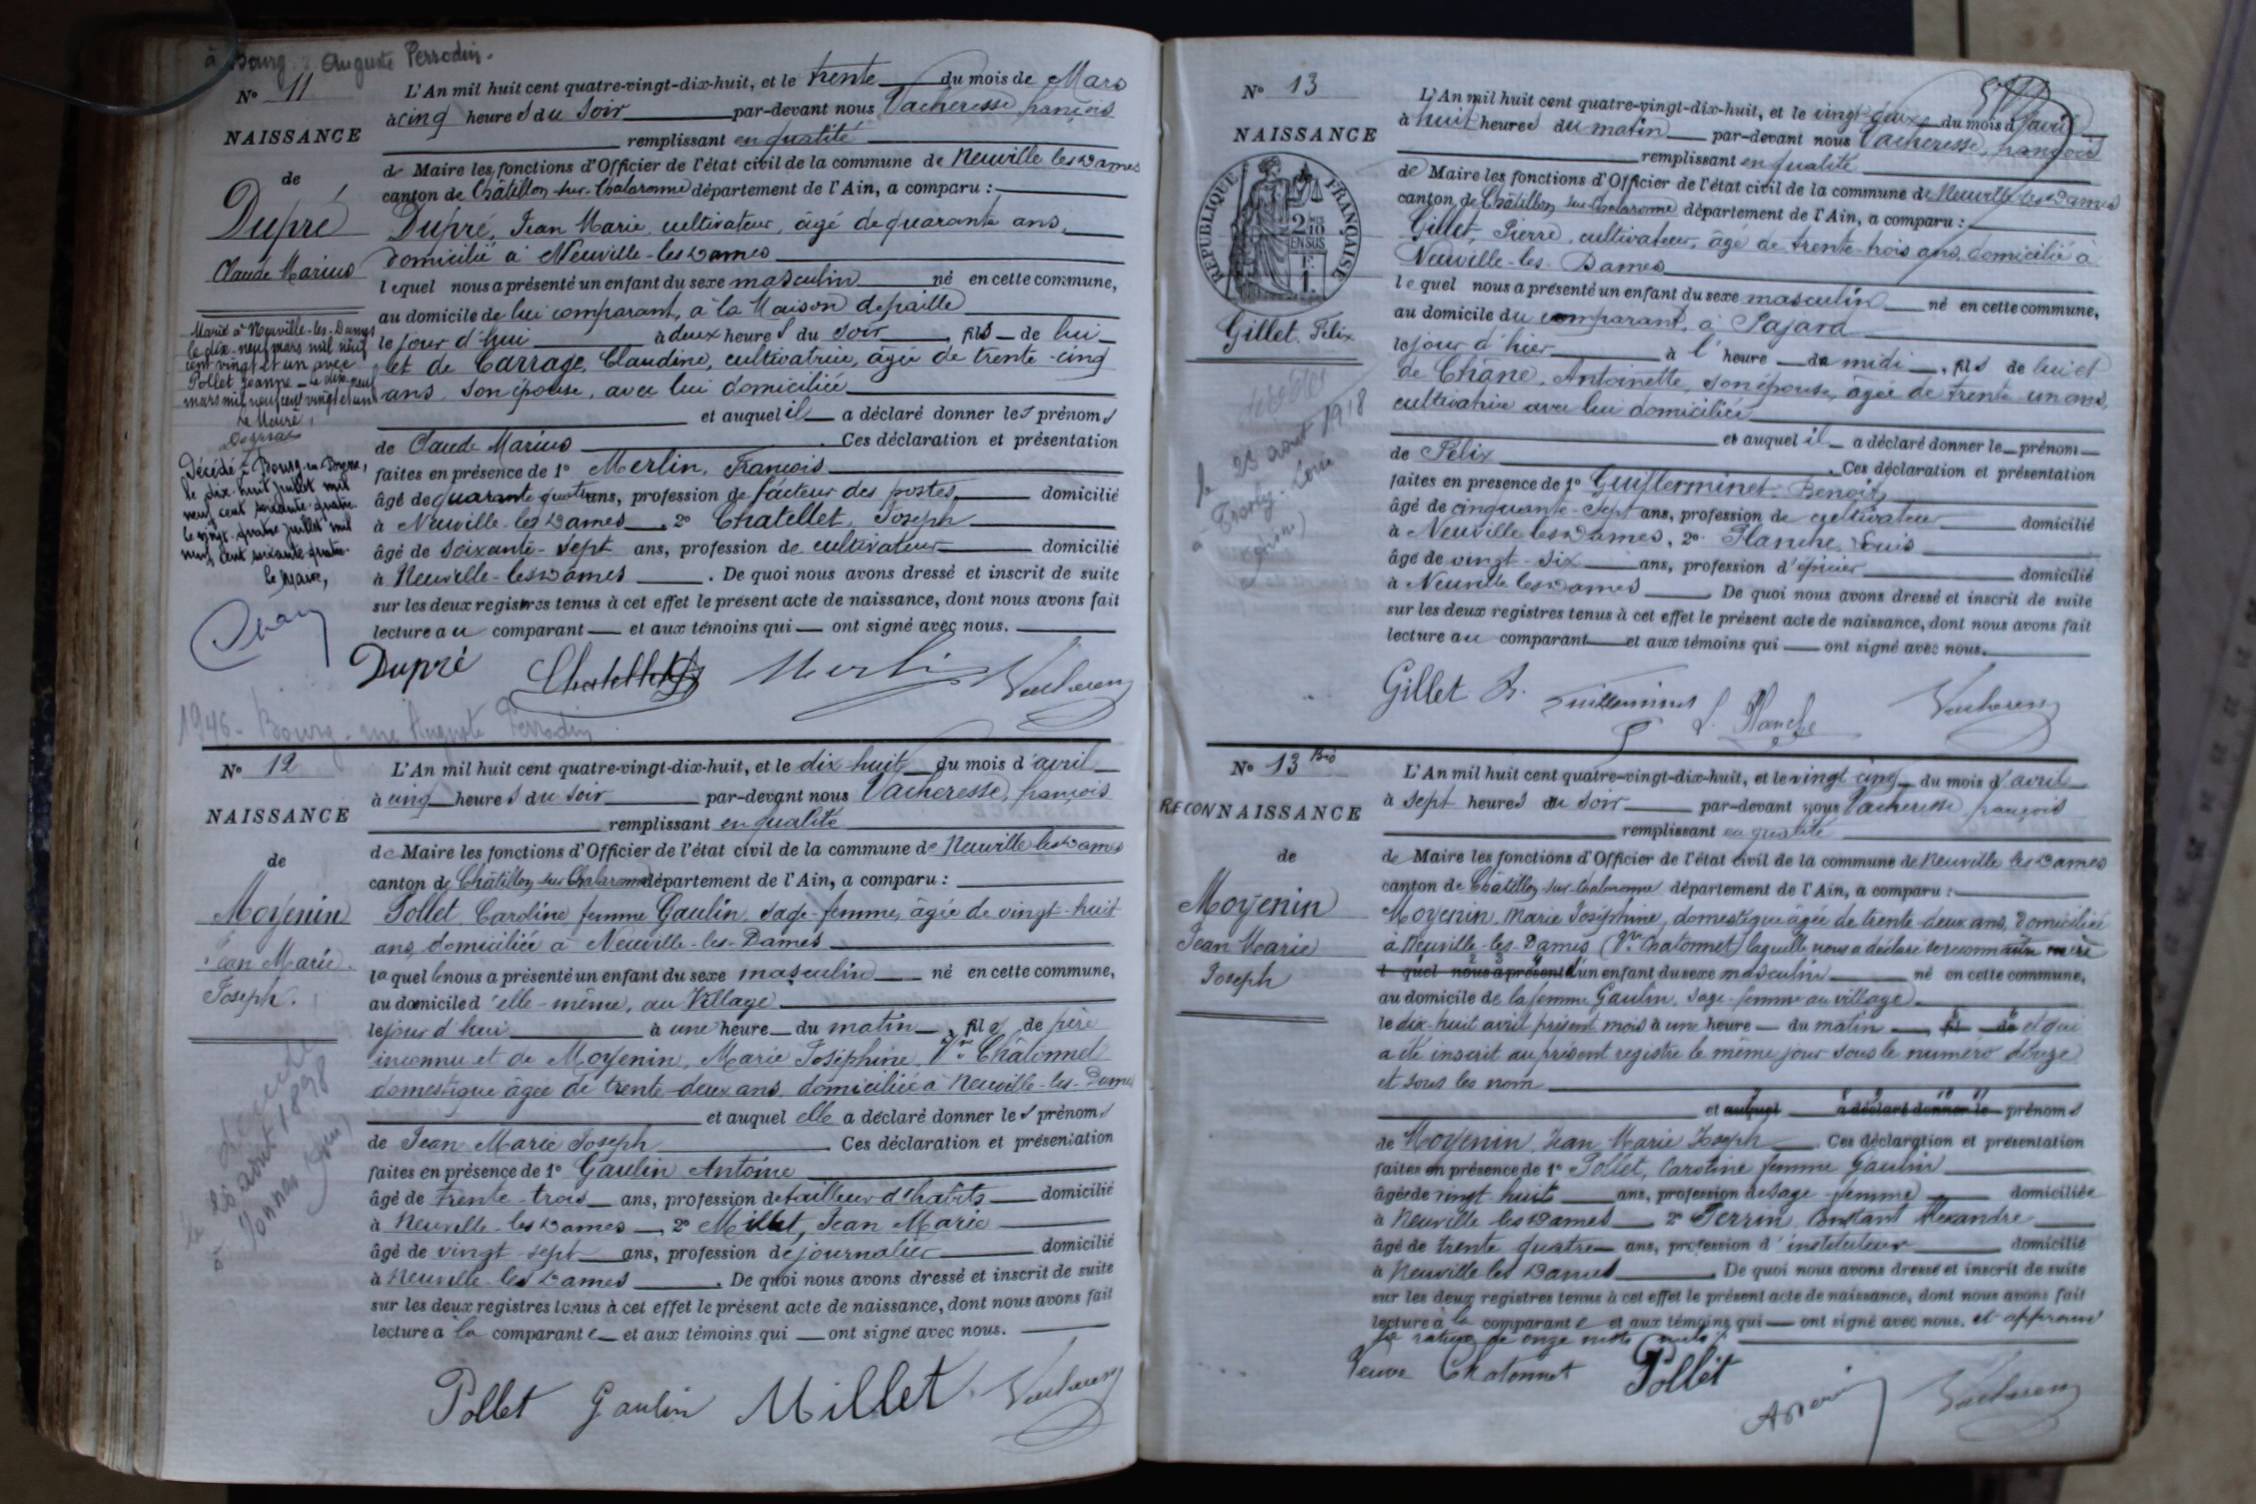 à Bourg : Auguste Perrodin.
N° 11
NAISSANCE
de
Dupré
Claude Marius
Marié à Neuville-les-Dames
le dix-neuf mars mil neuf
cent vingt et un avec
Pollet Jeanne - Le dix neuf
mars mil neuf cent vingt et un
Le Maire,
Décédé à Bourg-en-Bresse,
le dix-huit juillet mil
neuf cent soixante-quatre
le vingt-quatre juillet mil
neuf cent soixante-quatre.
Le Maire,
L'An mil huit cent quatre-vingt-dix-huit, et le trente du mois de Mars
à cinq heures du soir par-devant nous Vacheresse, françois
remplissant en qualité
de Maire les fonctions d'Officier de l'état civil de la commune de Neuville les Dames
canton de Châtillon-sur-Chalaronne département de l'Ain, a comparu :
Dupré, Jean Marie, cultivateur, âgé de quarante ans,
domicilié à Neuville-les-Dames
lequel nous a présenté un enfant du sexe masculin né en cette commune,
au domicile de lui comparant, à la Maison de paille
le jour d'hui à deux heures du soir, fils de lui
et de Carrage, Claudine, cultivatrice, âgée de trente-cinq
ans, son épouse, avec lui domiciliée
et auquel il a déclaré donner les prénoms
de Claude Marius. Ces déclaration et présentation
faites en présence de 1° Merlin, François
âgé de quarante quatre ans, profession de facteur des postes domicilié
à Neuville-les Dames, 2° Chatellet, Joseph
âgé de soixante-sept ans, profession de cultivateur domicilié
à Neuville-les Dames. De quoi nous avons dressé et inscrit de suite
sur les deux registres tenus à cet effet le présent acte de naissance, dont nous avons fait
lecture au comparant et aux témoins qui ont signé avec nous.
Dupré Chatellet Merlin Vacheresse
1946 - Bourg - rue Auguste Perrodin
N° 12
NAISSANCE
de
Moyenin
Jean Marie
Joseph.
décédé
le 28 août 1898
à
L'An mil huit cent quatre-vingt-dix-huit, et le dix-huit du mois d'avril
à cinq heures du soir par-devant nous Vacheresse, françois
remplissant en qualité
de Maire les fonctions d'Officier de l'état civil de la commune de Neuville les Dames
canton de Châtillon sur Chalaronne département de l'Ain, a comparu :
Pollet, Caroline femme Gaulin, sage-femme, âgée de vingt-huit
ans, domiciliée à Neuville-les-Dames
laquelle nous a présenté un enfant du sexe masculin né en cette commune,
au domicile d'elle-même, au Village
le jour d'hui à une heure du matin, fils de père
inconnu et de Moyenin, Marie Joséphine, Vve Châtonnet
domestique âgée de trente-deux ans, domiciliée à Neuville-les-Dames
et auquel elle a déclaré donner les prénoms
de Jean Marie Joseph. Ces déclaration et présentation
faites en présence de 1° Gaulin Antoine
âgé de trente-trois ans, profession de tailleur d'habits domicilié
à Neuville-les Dames, 2° Millet, Jean Marie
âgé de vingt-sept ans, profession de journalier domicilié
à Neuville-les Dames. De quoi nous avons dressé et inscrit de suite
sur les deux registres tenus à cet effet le présent acte de naissance, dont nous avons fait
lecture à la comparante et aux témoins qui ont signé avec nous.
Pollet Gaulin Millet Vacheresse
N° 13
NAISSANCE
RÉPUBLIQUE FRANÇAISE
2/10
EN SUS
F.
1.
Gillet, Félix
décédé
le 23 août 1918
à Trosly-Loire
L'An mil huit cent quatre-vingt-dix-huit, et le vingt-deux du mois d'avril
à huit heures du matin par-devant nous Vacheresse, françois
remplissant en qualité
de Maire les fonctions d'Officier de l'état civil de la commune de Neuville-les-Dames
canton de Châtillon sur Chalaronne département de l'Ain, a comparu :
Gillet, Pierre, cultivateur, âgé de trente-trois ans, domicilié à
Neuville-les-Dames
lequel nous a présenté un enfant du sexe masculin né en cette commune,
au domicile du comparant, à Pajard
le jour d'hier à l'heure de midi, fils de lui et
de Chane, Antoinette, son épouse, âgée de trente un ans,
cultivatrice avec lui domiciliée
et auquel il a déclaré donner le prénom
de Félix. Ces déclaration et présentation
faites en présence de 1° Guillerminet, Benoit
âgé de cinquante-sept ans, profession de cultivateur domicilié
à Neuville les Dames, 2° Planche, Louis
âgé de vingt-six ans, profession d'épicier domicilié
à Neuville les Dames. De quoi nous avons dressé et inscrit de suite
sur les deux registres tenus à cet effet le présent acte de naissance, dont nous avons fait
lecture au comparant et aux témoins qui ont signé avec nous.
Gillet Guillerminet L. Planche Vacheresse
N° 13 Bis
RECONNAISSANCE
de
Moyenin
Jean Marie
Joseph
L'An mil huit cent quatre-vingt-dix-huit, et le vingt-cinq du mois d'avril
à sept heures du soir par-devant nous Vacheresse françois
remplissant en qualité
de Maire les fonctions d'Officier de l'état civil de la commune de Neuville les Dames
canton de Châtillon-sur-Chalaronne département de l'Ain, a comparu :
Moyenin, Marie Joséphine, domestique âgée de trente-deux ans, domiciliée
à Neuville-les-Dames (Vve Chatonnet) laquelle nous a déclaré se reconnaître mère
l quel nous a présenté d'un enfant du sexe masculin né en cette commune,
au domicile de la femme Gaulin, sage-femme au village
le dix-huit avril présent mois à une heure du matin, fil de et qui
a été inscrit au présent registre le même jour sous le numéro douze
et sous les nom
et auquel a déclaré donner le prénoms
de Moyenin, Jean Marie Joseph. Ces déclaration et présentation
faites en présence de 1° Pollet, Caroline femme Gaulin
âgée de vingt huit ans, profession de sage-femme domiciliée
à Neuville les Dames 2° Perrin, Constant Alexandre
âgé de trente quatre ans, profession d'instituteur domicilié
à Neuville les Dames. De quoi nous avons dressé et inscrit de suite
sur les deux registres tenus à cet effet le présent acte de naissance, dont nous avons fait
lecture à la comparante et aux témoins qui ont signé avec nous. et approuvé
la rature de onze mots nuls.
Veuve Chatonnet Pollet Vacheresse